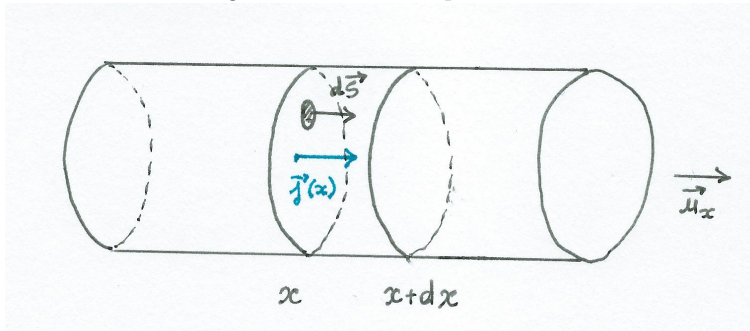 dS⃗
j⃗(x)
u⃗ₓ
x
x+dx